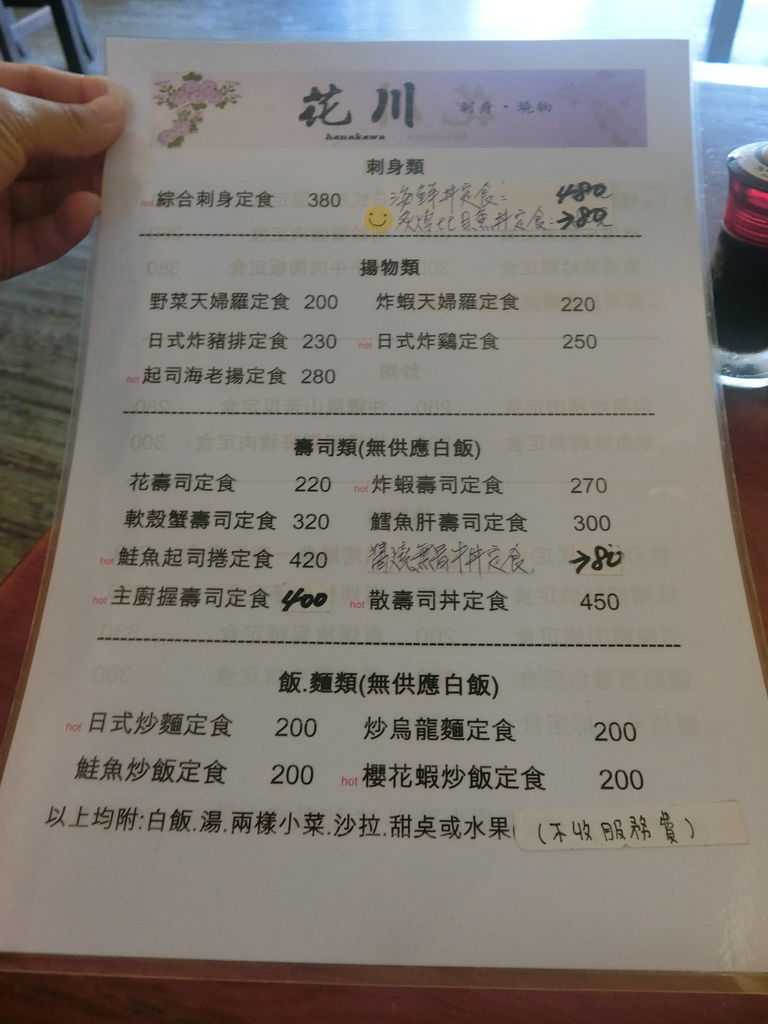 花川
hanakawa
刺身・燒物
刺身類
hot 綜合刺身定食 380 海鮮丼定食: 480
炙燒比目魚丼定食: 380元
揚物類
野菜天婦羅定食 200 炸蝦天婦羅定食 220
日式炸豬排定食 230 hot 日式炸鷄定食 250
hot 起司海老揚定食 280
壽司類(無供應白飯)
花壽司定食 220 hot 炸蝦壽司定食 270
軟殼蟹壽司定食 320 鱈魚肝壽司定食 300
hot 鮭魚起司捲定食 420 醬燒無骨牛丼定食 380
hot 主廚握壽司定食 400 hot 散壽司丼定食 450
飯.麵類(無供應白飯)
hot 日式炒麵定食 200 炒烏龍麵定食 200
鮭魚炒飯定食 200 hot 櫻花蝦炒飯定食 200
以上均附:白飯.湯.兩樣小菜.沙拉.甜奌或水果 (不收服務費)